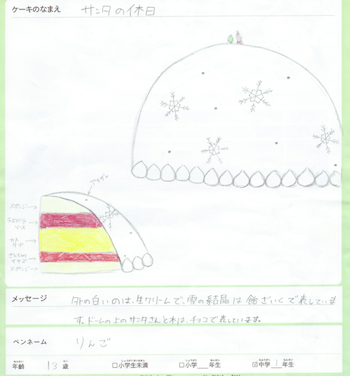 ケーキのなまえ サンタの休日
メッセージ
外の白いのは、生クリームで、雪の結晶は飴ざいくで表していま
す。ドームの上のサンタさんと木は、チョコで表しています。
ペンネーム りんご
年齢 13 歳 □小学生未満 □小学__年生 ☑中学 1 年生